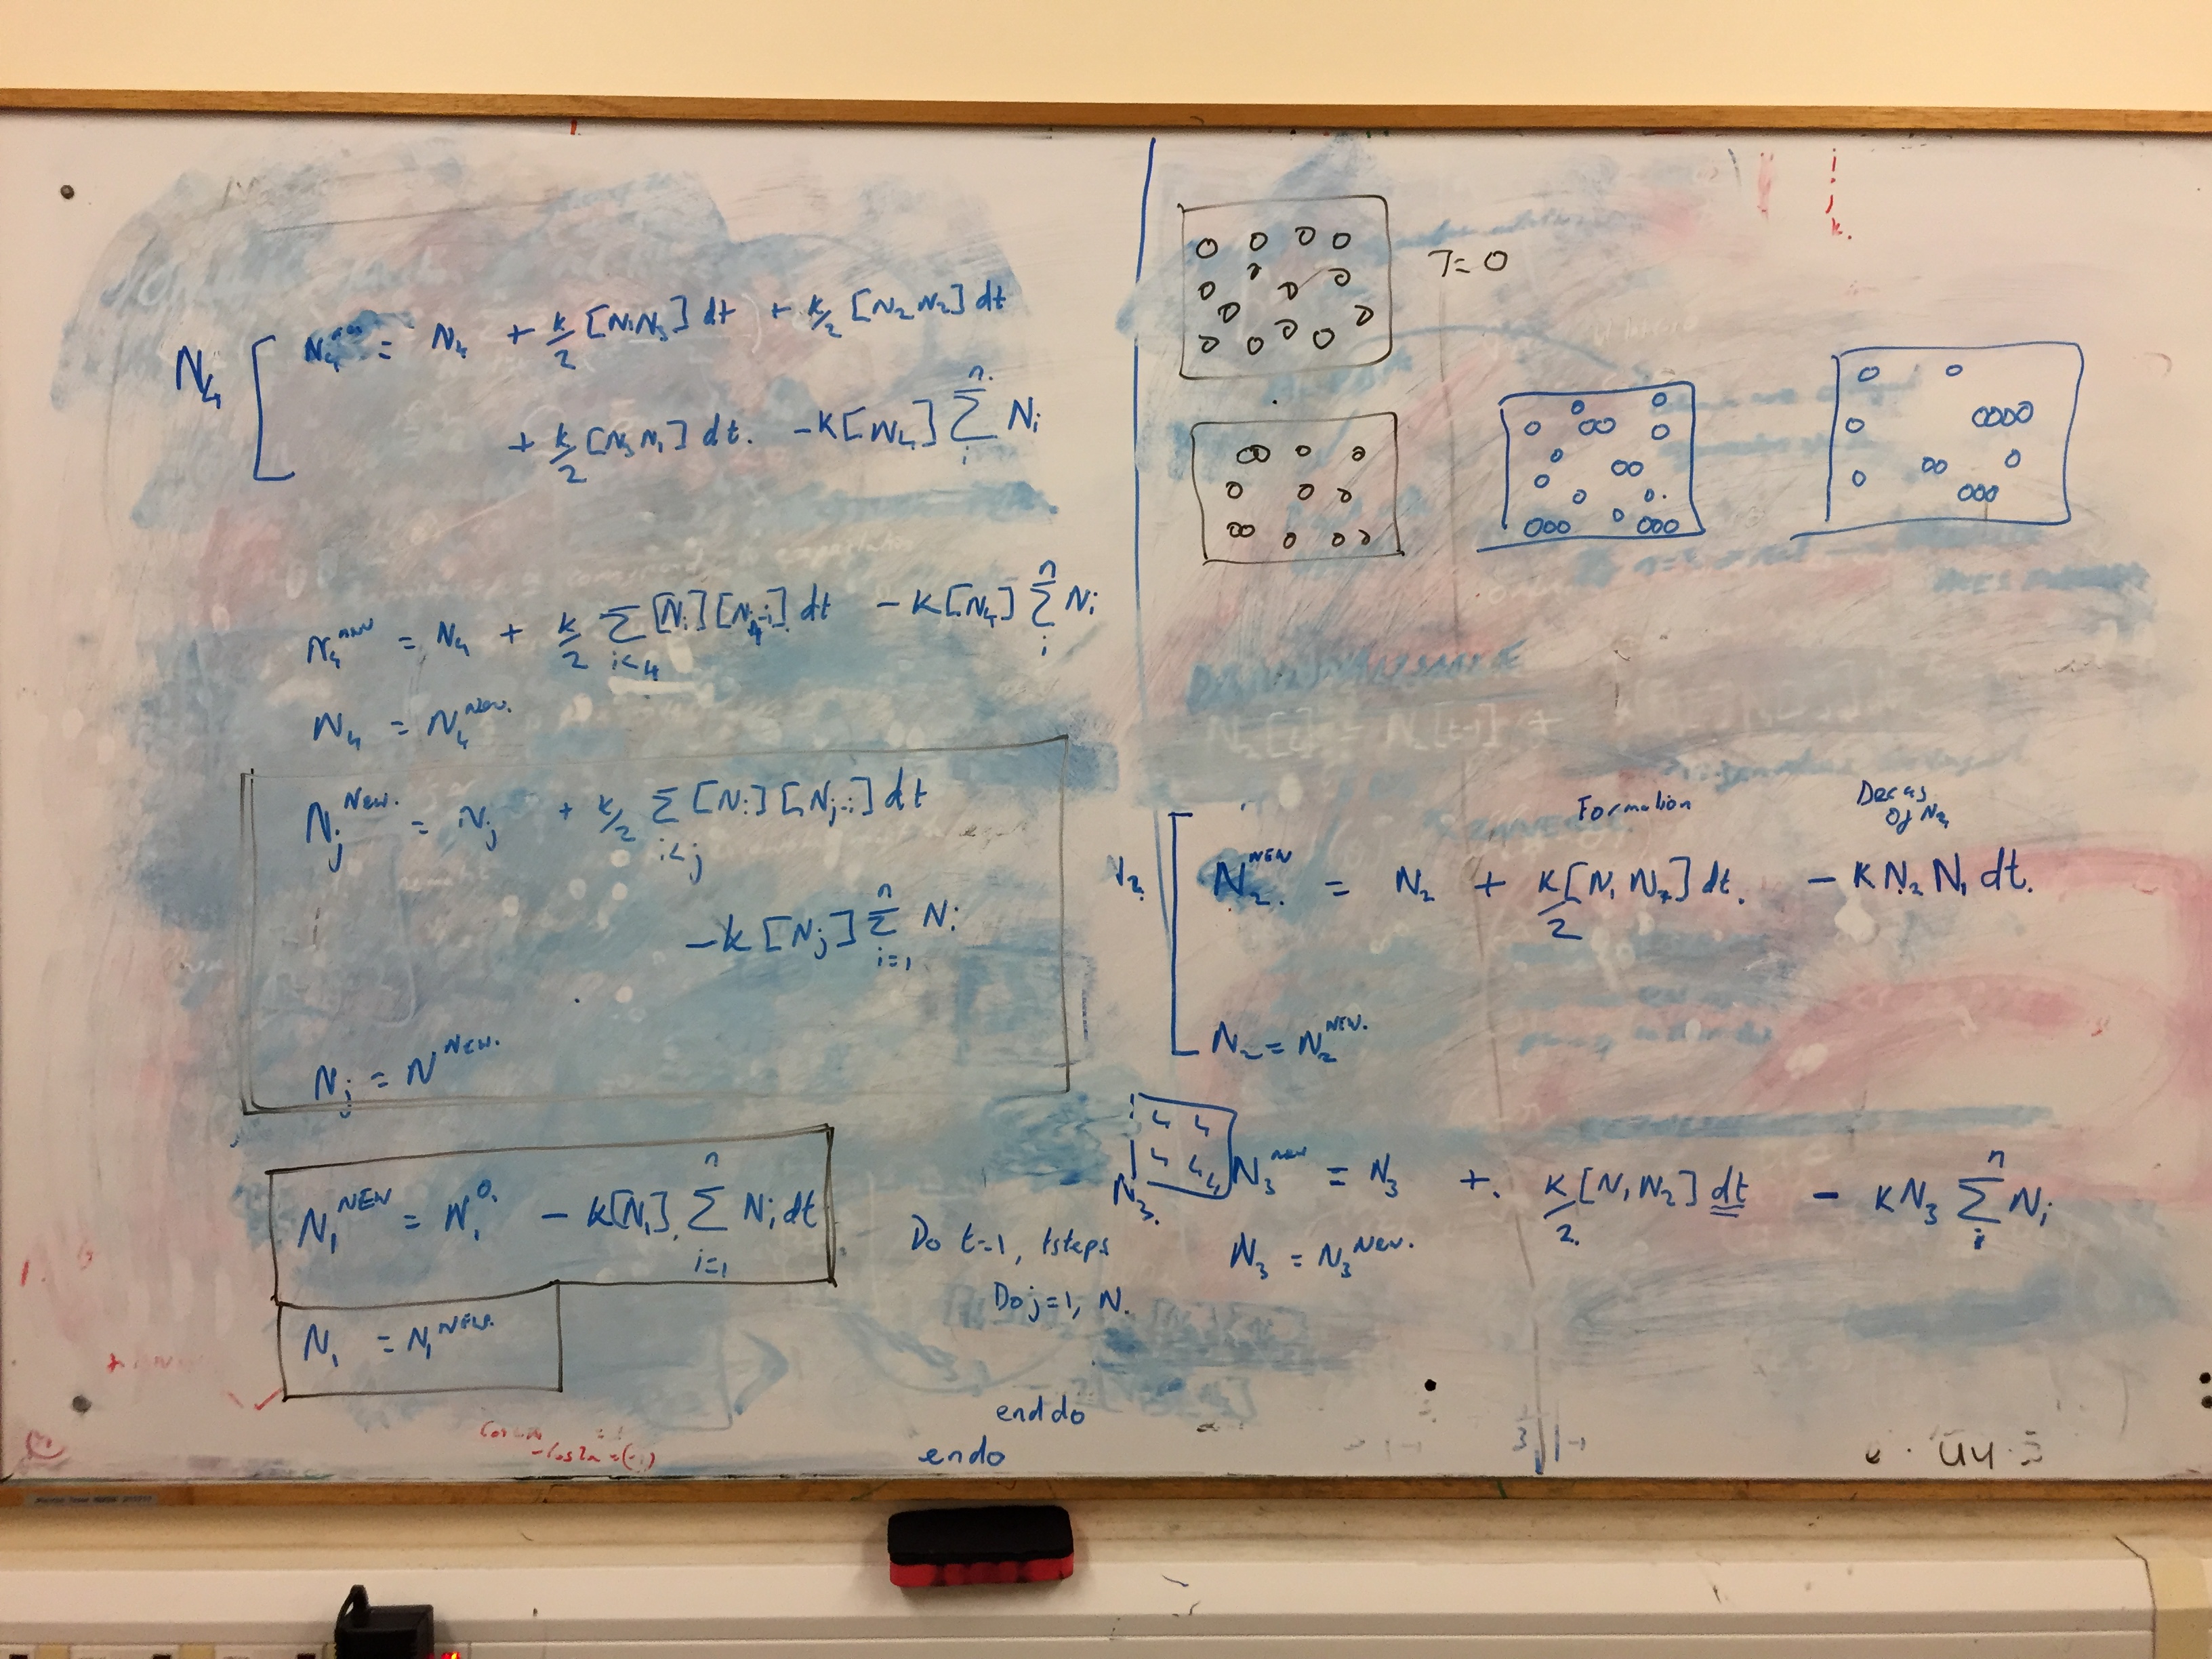 N₄ [ N₄ = N₄ + k/2 [N₁N₃] dt + k/2 [N₂N₂] dt
+ k/2 [N₃N₁] dt. -K[N₄] Σᵢⁿ Nᵢ
N₄ⁿᵉʷ = N₄ + k/2 Σ_{i<4} [Nᵢ][N₄₋ᵢ] dt - K[N₄] Σᵢⁿ Nᵢ
N₄ = N₄^New.
Nⱼ^New. = Nⱼ + k/2 Σ_{i<j} [Nᵢ][Nⱼ₋ᵢ] dt
-k[Nⱼ] Σ_{i=1}^n Nᵢ
Nⱼ = N^NEW.
N₁^NEW = N₁^0. - k[N₁] Σ_{i=1}^n Nᵢ dt
N₁ = N₁^NEW.
Do t=1, tsteps
Do j=1, N.
enddo
endo
T=0
Formation
Decay
Of N₂
N₂^NEW = N₂ + K/2 [N₁ N₂] dt. - K N₂ N₁ dt.
N₂ = N₂^NEW.
N₃.
N₃^new = N₃ +. K/2. [N₁N₂] dt - KN₃ Σᵢⁿ Nᵢ
N₃ = N₃^New.